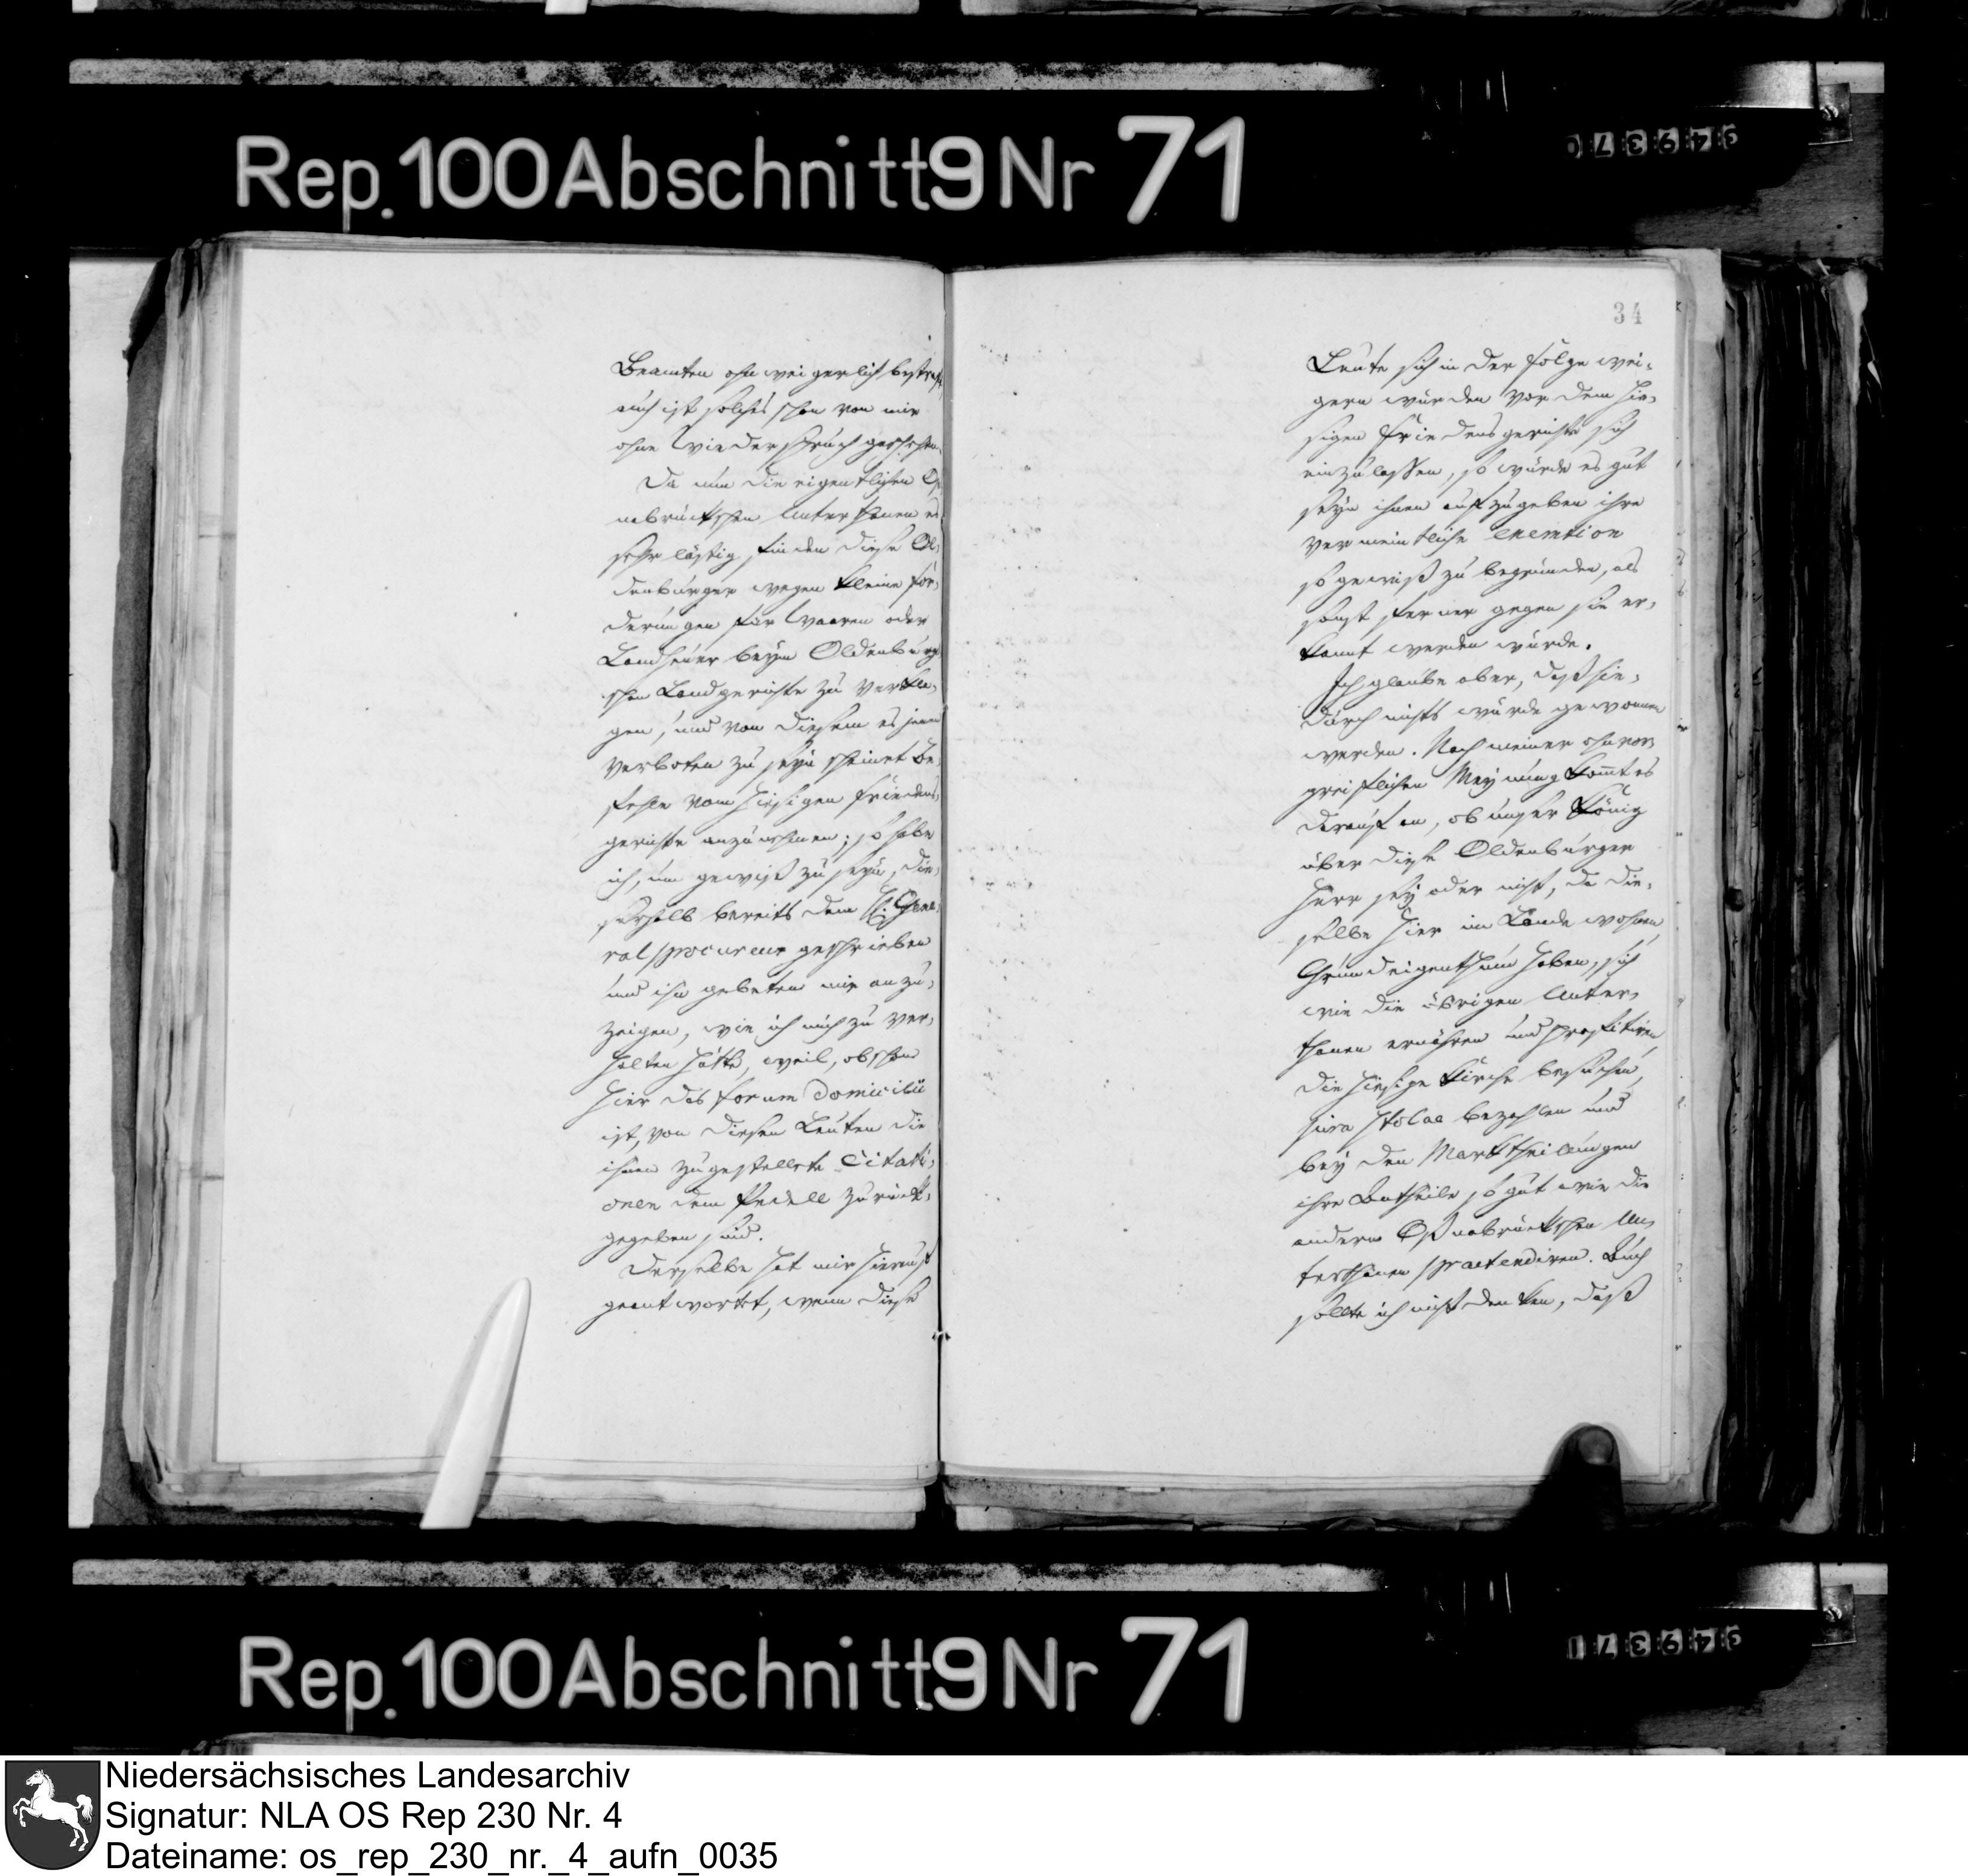 Rep. 100 Abschnitt 9 Nr 71
349370
Beamten ohnweigerlich bestraft,
auch ist solches schon von mir
ohne Wiederspruch geschehen.
Da nun die eigentlichen Os
nabrückschen Unterthanen es
sehr lästig finden diese Ol-
denburger wegen kleine For-
derungen für Waaren oder
Landheuer beym Oldenburg
schen Landgerichte zu verkla-
gen, und von diesem es jenen
verboten zu seyn scheinet Be-
fehle vom hiesigen Friedens-
gerichte anzunehmen; so habe
ich, um gewiß zu seyn, die-
serhalb bereits dem H. Gene-
ralprocureur geschrieben
und ihn gebeten mir anzu-
zeigen, wie ich mich zu ver-
halten hätte, weil, obschon
hier das forum domicilii
ist, von diesen Leuten die
ihnen zugestellete Citati-
onen dem Pedell zurück-
gegeben sind.
Derselbe hat mir hierauf
geantwortet, wenn diese
34
Leute sich in der Folge wei-
gern würden vor dem hie-
sigen Friedensgerichte sich
einzulassen, so würde es gut
seyn ihnen aufzugeben ihre
vermeintliche Exemtion
so gewiß zu begründen, als
sonst ferner gegen sie er-
kannt werden würde.
Ich glaube aber, daß hie-
durch nichts würde gewonnen
werden. Nach meiner ohnvor-
greiflichen Meynung kommt es
darauf an, ob unser König
über diese Oldenburger
Herr sey oder nicht, da die-
selbe hier im Lande wohnen,
Grundeigenthum haben, sich
wie die übrigen Unter-
thanen ernähren und profitiren,
die hiesige Kirche besuchen,
jura stolae bezahlen und
bey den Marktheilungen
ihre Antheile so gut wie die
andern Oßnabrückschen Un-
terthanen praetendiren. Auch
sollte ich nicht denken, daß
Rep. 100 Abschnitt 9 Nr 71
349371
Niedersächsisches Landesarchiv
Signatur: NLA OS Rep 230 Nr. 4
Dateiname: os_rep_230_nr._4_aufn_0035